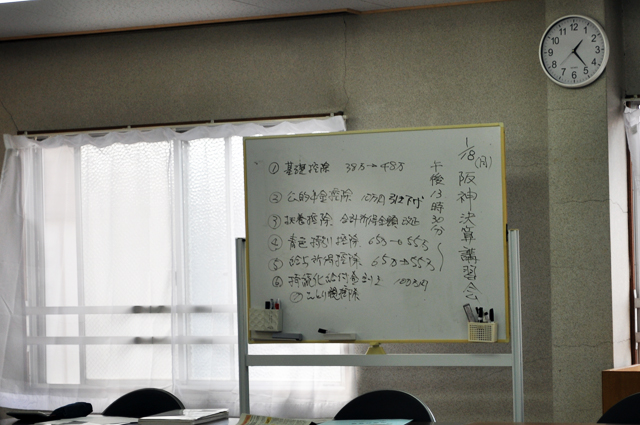 1/18(月) 阪神決算講習会
午後13時30分〜
① 基礎控除 38万→48万
② 公的年金控除 10万円引下げ
③ 扶養控除、合計所得金額 改正
④ 青色特別控除 65万→55万
⑤ 給与所得控除 65万→55万
⑥ 持続化給付金 100万円
⑦ ひとり親控除
12
1
2
3
4
5
6
7
8
9
10
11